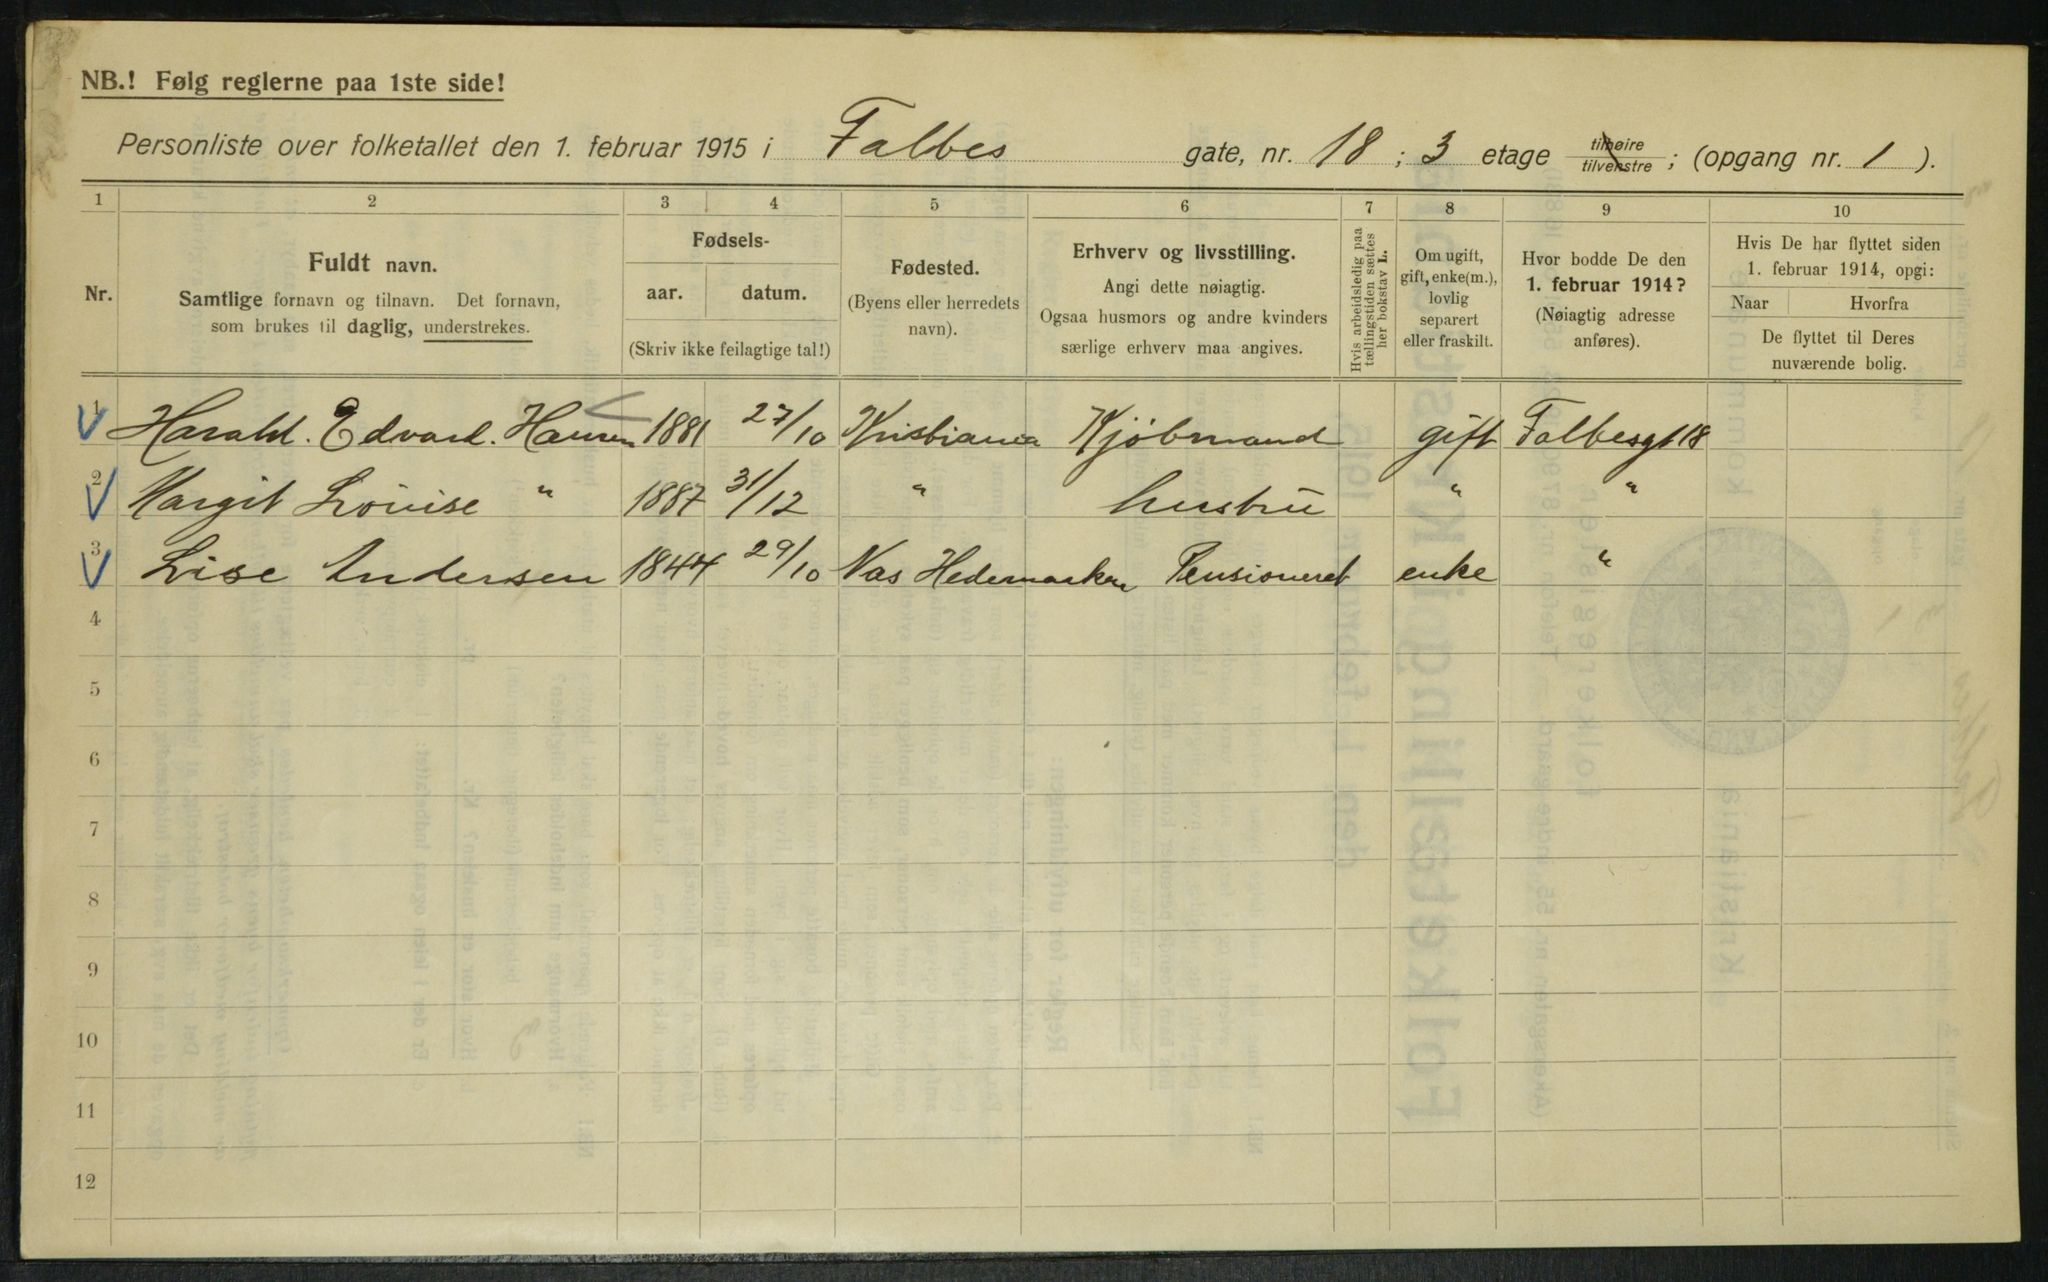 NB.! Følg reglerne paa 1ste side!
Personliste over folketallet den 1. februar 1915 i Falbes gate, nr. 18 ; 3 etage tilhøire tilvenstre ; (opgang nr. 1 ).
1 2 3 4 5 6 7 8 9 10
Nr.
Fuldt navn.
Samtlige fornavn og tilnavn. Det fornavn,
som brukes til daglig, understrekes.
Fødsels-
aar. datum.
(Skriv ikke feilagtige tal!)
Fødested.
(Byens eller herredets
navn).
Erhverv og livsstilling.
Angi dette nøiagtig.
Ogsaa husmors og andre kvinders
særlige erhverv maa angives.
Hvis arbeidsledig paa
tællingstiden sættes
her bokstav L.
Om ugift,
gift, enke(m.),
lovlig
separert
eller fraskilt.
Hvor bodde De den
1. februar 1914?
(Nøiagtig adresse
anføres).
Hvis De har flyttet siden
1. februar 1914, opgi:
Naar Hvorfra
De flyttet til Deres
nuværende bolig.
1 Harald. Edvard. Hansen 1881 27/10 Kristiania Kjøbmand gift Falbesgt 18
2 Margit Louise " 1887 31/12 " hustru " "
3 Lise Andersen 1844 29/10 Nas Hedemarken Pensioneret enke "
4
5
6
7
8
9
10
11
12